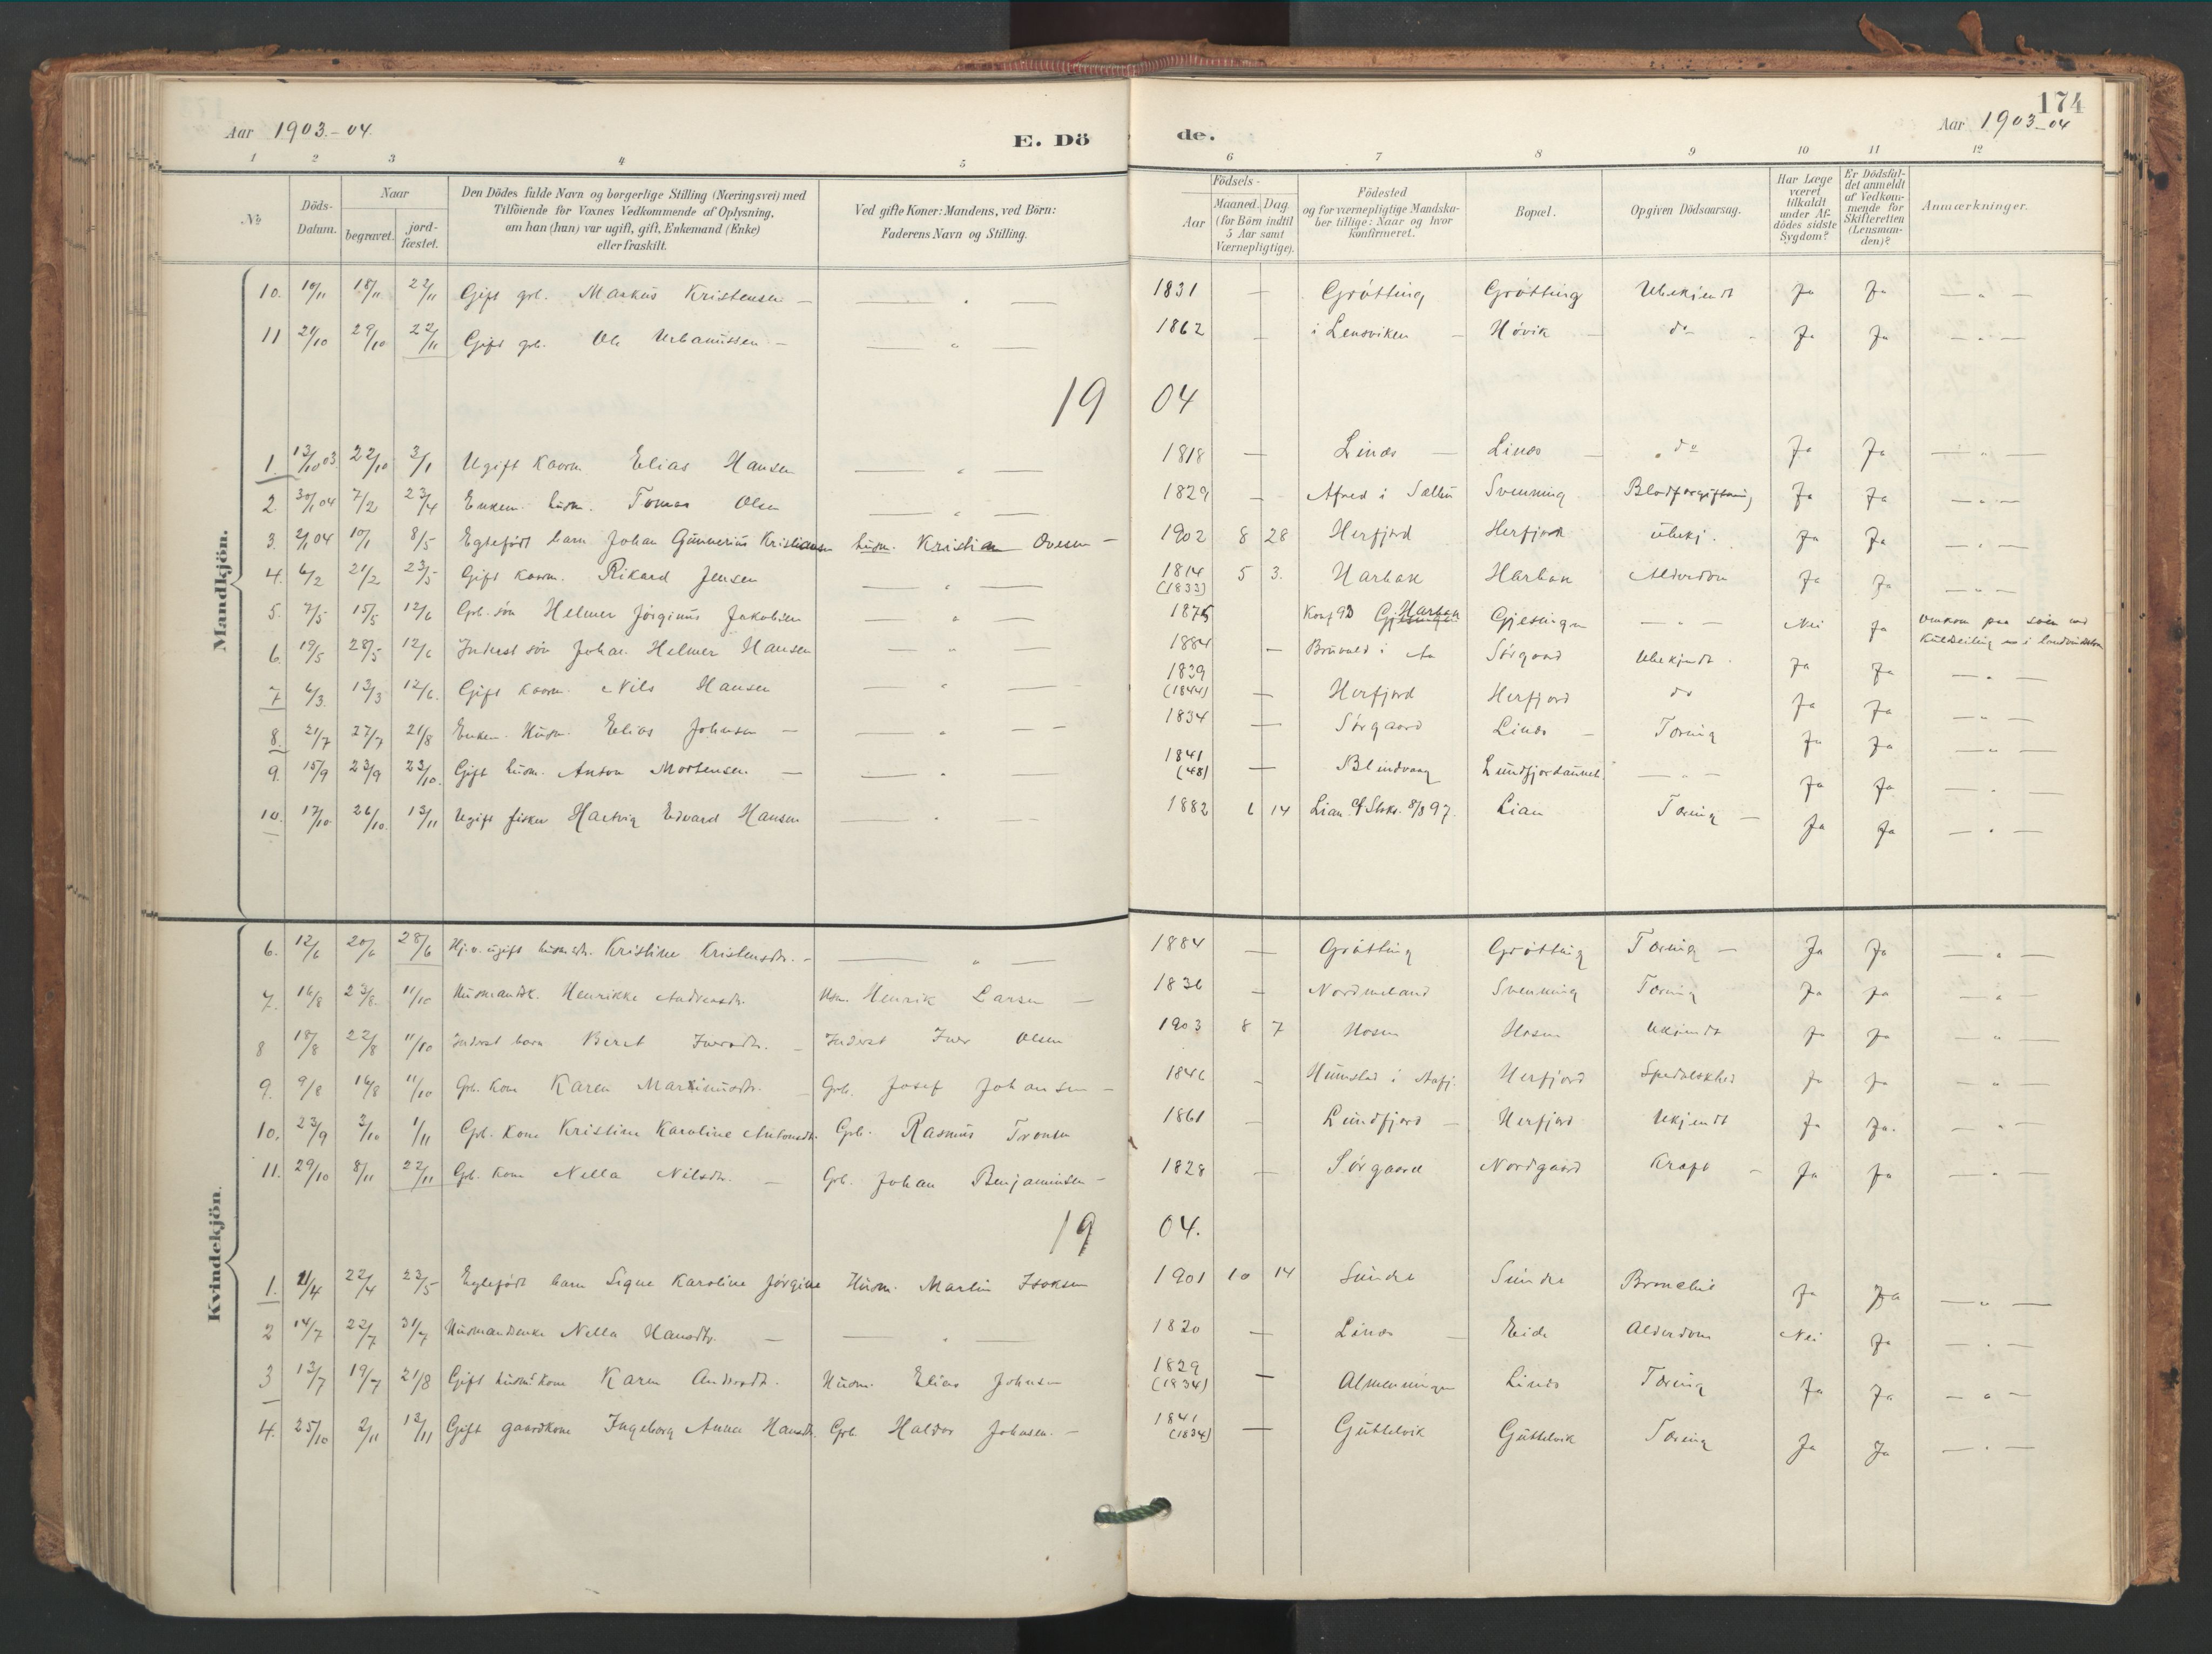 174
Aar 1903-04. E. Dö de. Aar 1903-04
1 2 3 4 5 6 7 8 9 10 11 12
No
Döds-Datum.
Naar
begravet.
jord-fæstet.
Den Dödes fulde Navn og borgerlige Stilling (Næringsvei) med
Tilföiende for Voxnes Vedkommende af Oplysning,
om han (hun) var ugift, gift, Enkemand (Enke)
eller fraskilt.
Ved gifte Koner: Mandens, ved Börn:
Faderens Navn og Stilling.
Födsels-
Aar
Maaned. Dag.
(for Börn indtil
5 Aar samt
Værnepligtige).
Födested
og for værnepligtige Mandska-
ber tillige: Naar og hvor
konfirmeret.
Bopæl.
Opgiven Dödsaarsag.
Har Læge
været
tilkaldt
under Af-
dödes sidste
Sygdom?
Er Dödsfal-
det anmeldt
af Vedkom-
mende for
Skifteretten
(Lensman-
den)?
Anmærkninger.
Mandkjön.
10. 10/11 18/11 22/11 Gift grb. Markus Kristensen — — " — 1831 — Gröttting Grötting Ubekjendt Ja Ja — " —
11 21/10 29/10 22/11 Gift grb. Ole Urbanussen — — " — 1862 — i Lensviken — Hövik — do Ja Ja — " —
1904
1. 13/10 03 22/10 3/1 Ugift kaarm. Elias Hansen — " — 1818 — Linæs — Linæs — " do Ja Ja — " —
2. 30/1 04 7/2 23/4 Enkem. husm. Tomas Olsen — " — 1829 — Svenning Blodforgiftning Ja Ja — " —
3. 2/1 04 10/1 8/5 Egtefödt barn Johan Gunnerius Kristiansen husm. Kristian Ovesen — 1902 8 28 Herfjord Herfjord ubekj. Ja Ja — " —
4. 6/2 21/2 23/5 Gift kaarm. Rikard Jensen — " — 1814 (1833) 5 3. Harbak Harbak Alderdom Ja Ja — " —
5. 7/5 15/5 12/6 Grb. sön Helmer Jörginus Jakobsen — " — 1875 Konf 93 Harbak Gjesingen — " — Nei Ja omkom paa söen ved
kuldseiling
6. 19/5 28/5 12/6 Inderst sön Johan Helmer Hansen — " — 1884 — i Aa Sörgaard Ubekjendt. Ja Ja — " —
7 6/3 13/3 12/6. Gift kaarm. Nils Hansen — " — 1839 (1844) — Herfjord Herfjord do Ja Ja — " —
8. 21/7 27/7 21/8 Enkem. Husm. Elias Johnsen — — " — 1834 — Sörgaard Linæs — Tæring Ja Ja — " —
9. 15/9 23/9 23/10. Gift husm. Anton Mortensen. — — " — 1841 (48) — Blindvaag — " — Ja Ja — " —
10. 17/10 26/10. 13/11 Ugift fisker Hartvig Edvard Hansen — " — 1882 6 14 Lian. 8/8 97. Lian Tæring — Ja Ja — " —
Kvindekjön.
6. 12/6 20/6 28/6 Hj.v. ugift Kristine Kristensdtr. — — " — 1884 — Grötting Grötting Tæring — Ja Ja — " —
7. 16/8 23/8. 11/10 Husmandsk. Henrikke Andreasdtr. Hsm. Henrik Larsen — 1836 — Nordmeland Svenning Tæring Ja Ja — " —
8 18/8 22/8 11/10 Inderst barn Beret Iversdtr. — Inderst Iver Olsen 1903 8 7 Hosen Hosen Ukjendt Ja Ja — " —
9. 9/8 16/8 11/10 Grb. kone Karen Marsimusdtr. — Grb. Josef Johansen — 1846 — Humstad i Aafj. Herfjord Spedalskhed Ja Ja — " —
10. 23/9 3/10 1/11 Grb. kone Kristine Karoline Antonsdtr. Grb. Rasmus Tronsen 1861 — Lundfjord — Herfjord Ukjendt Ja Ja. — " —
11. 29/10 8/11 22/11 Grb. kone Nella Nilsdtr. — Grb. Johan Benjaminsen — 1828 — Sörgaard Nordgaard Kræft — Ja Ja — " —
1904.
1. 11/4 22/4 23/5 Egtefödt barn Signe Karoline Jörgine Husm. Martin Isaksen 1901 10 14 Sundet Sundet Bronchit Ja Ja — " —
2 14/7 22/7 31/7 Husmandsenke Nella Hansdtr. — — " — 1820 — Linæs — Eide Alderdom Nei Ja — " —
3 13/7 19/7 21/8 Gift husm.kone Karen Andersdtr. Husm. Elias Johnsen 1829 (1834) — Almenningen Linæs Tæring Ja Ja — " —
4. 25/10 2/11 13/11 Gift gaardkone Ingeborg Anna Hansdtr. Grb. Haldor Johnsen. — 1841 (1834) — Guttelvik Guttelvik Tæring Ja Ja — " —